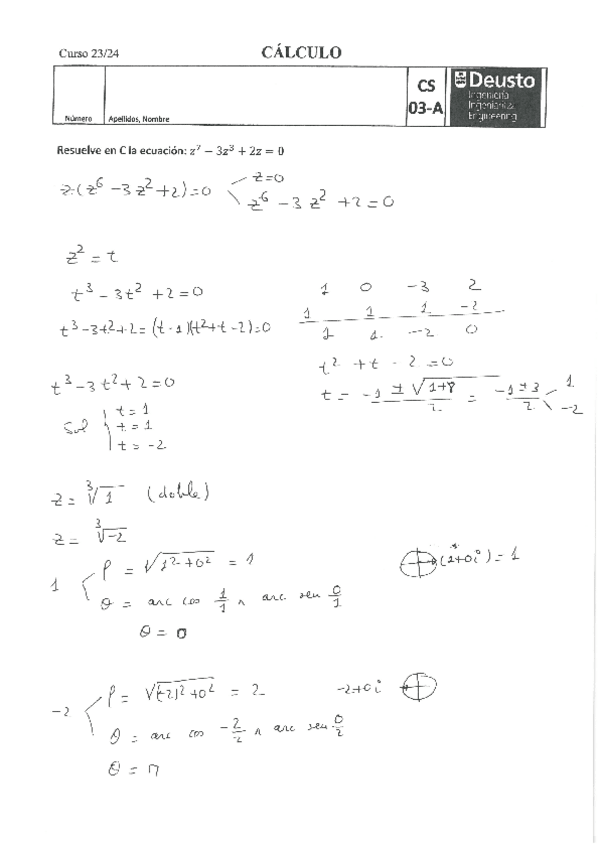 Curso 23/24 CÁLCULO
CS
03-A
Deusto
Ingeniería
Ingeniaritza
Engineering
Número Apellidos, Nombre
Resuelve en C la ecuación: z⁷ − 3z³ + 2z = 0
z·(z⁶ − 3z² + 2) = 0 z = 0
z⁶ − 3z² + 2 = 0
z² = t
t³ − 3t² + 2 = 0
t³ − 3t² + 2 = (t - 1)(t² + t − 2) = 0
1 0 −3 2
1 1 1 −2
1 1 −2 0
t² + t − 2 = 0
t = −1 ± √(1+8) / 2 = −1 ± 3 / 2 1
−2
t³ − 3t² + 2 = 0
Sol t = 1
t = 1
t = −2
z = ∛1 (doble)
z = ∛−2
1 ρ = √(1² + 0²) = 1
θ = arc cos 1/1 ∧ arc sen 0/1
θ = 0
(1+0i) = 1
−2 ρ = √((−2)² + 0²) = 2
θ = arc cos −2/2 ∧ arc sen 0/2
θ = π
−2+0i